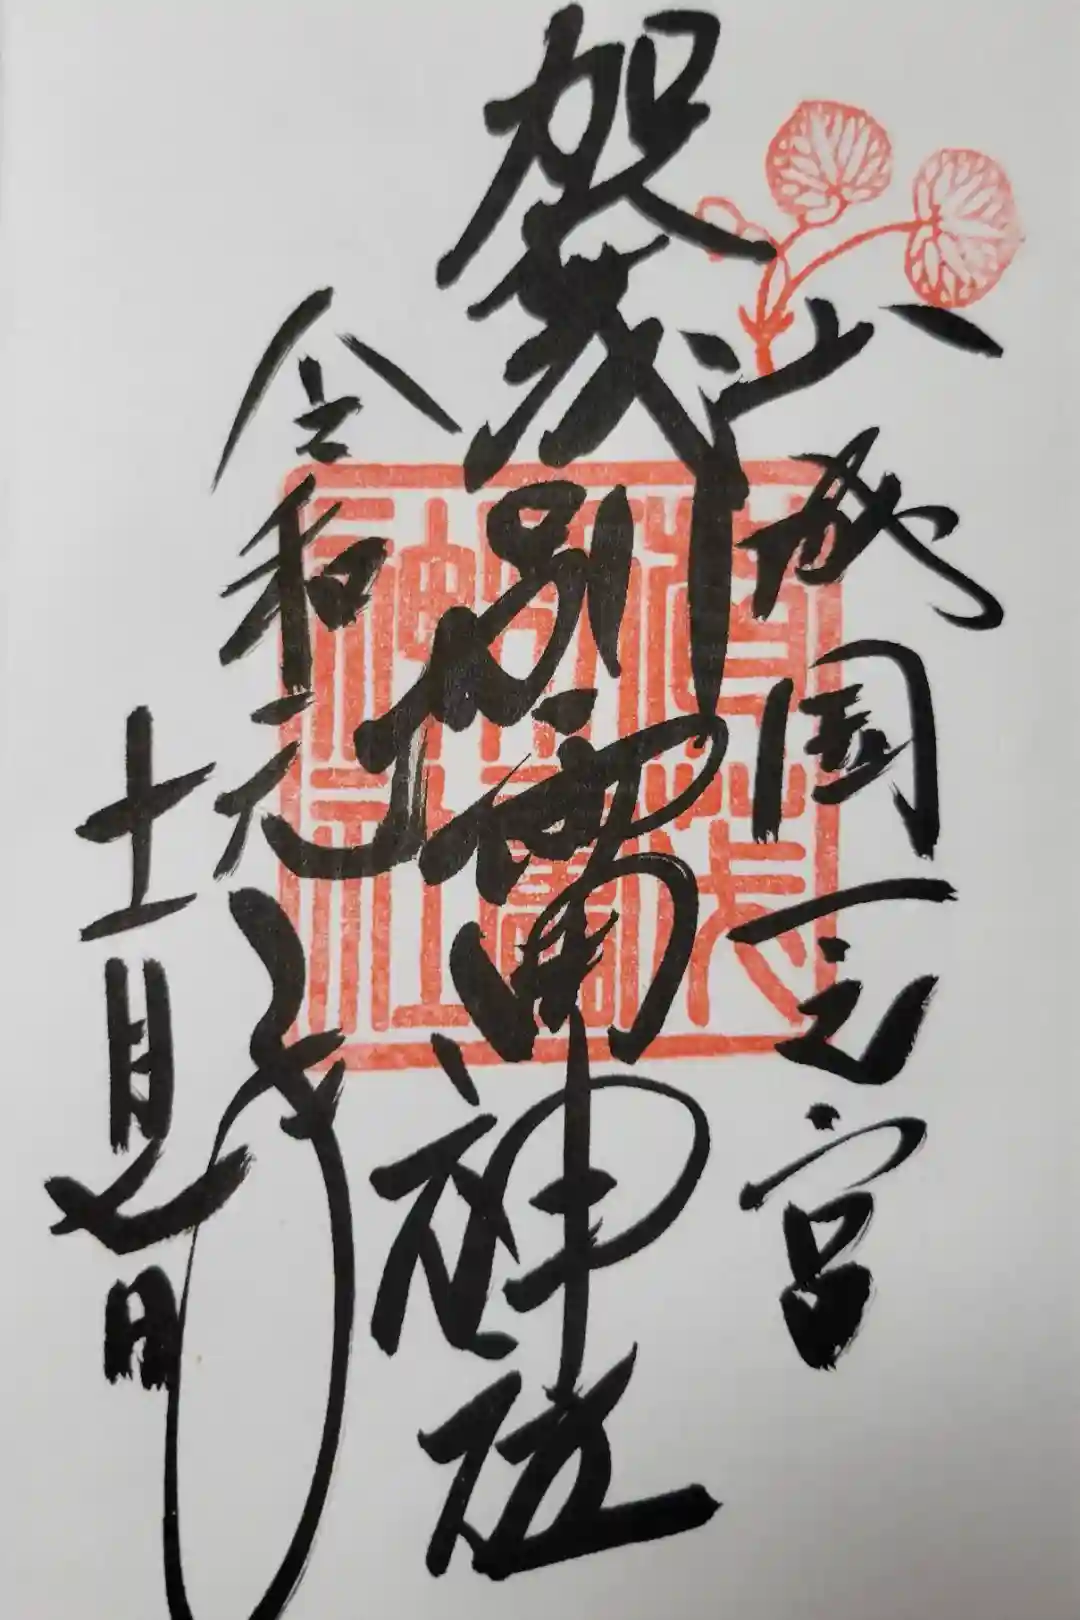 山城国一之宮
賀茂別雷神社
令和元年
十一月七日
賀茂別雷神社